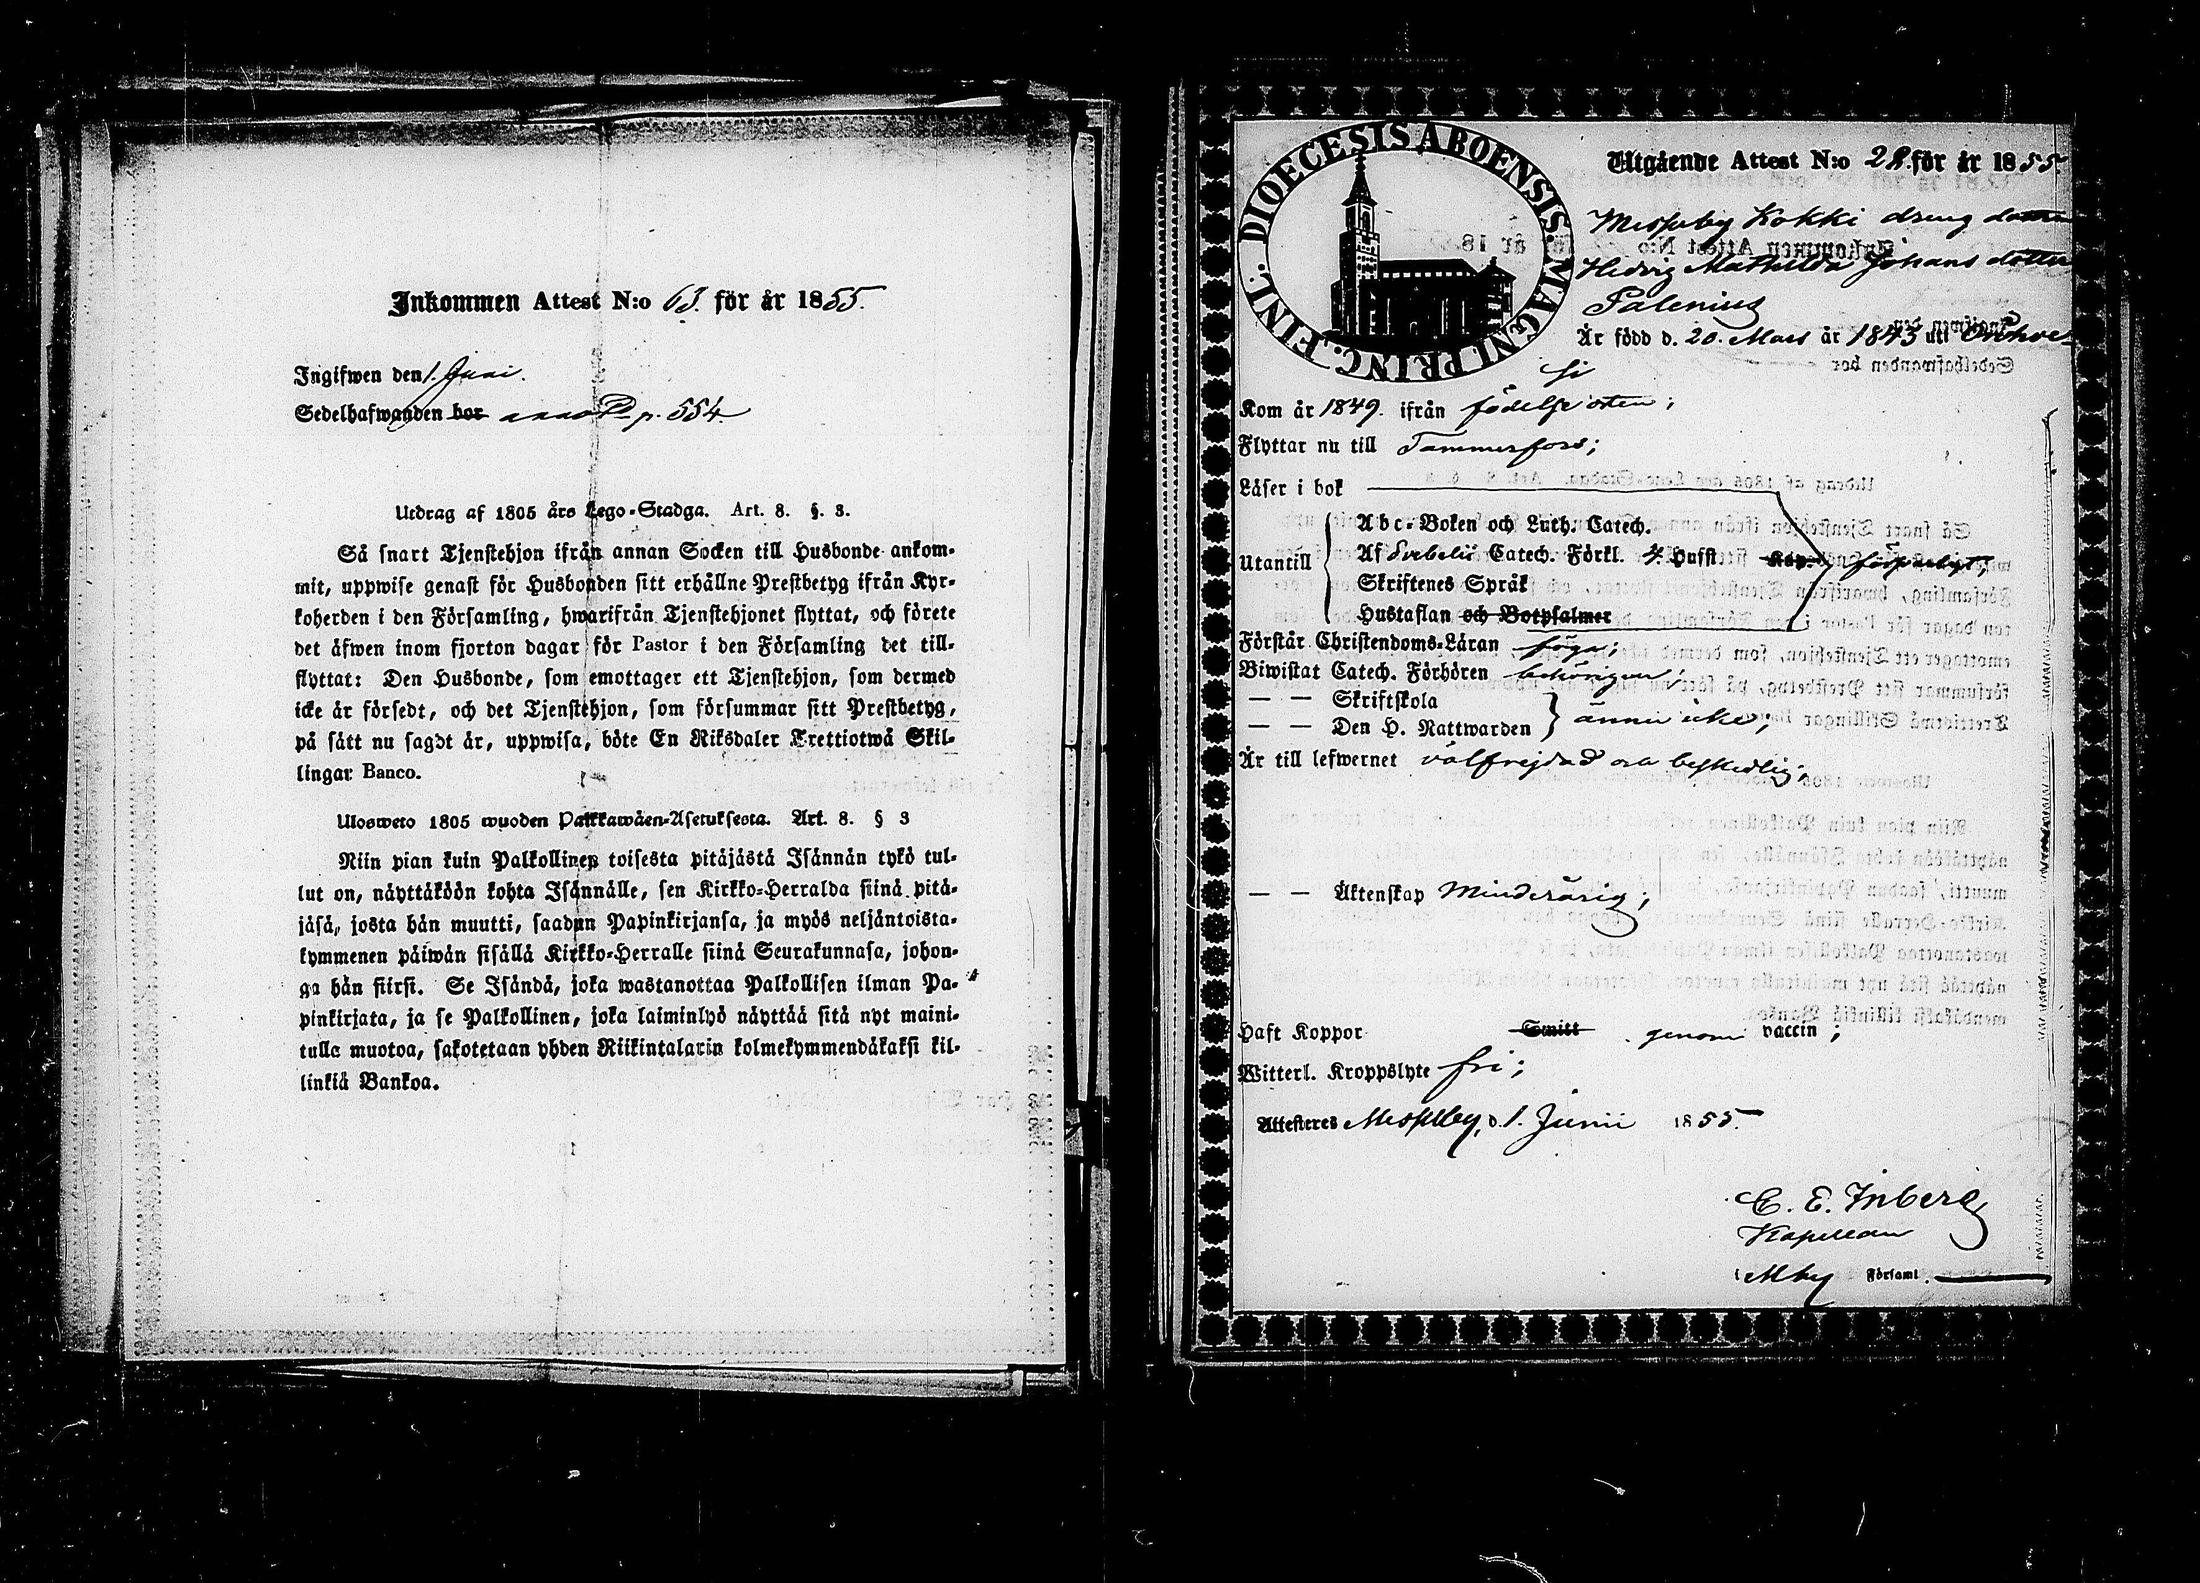 Inkommen Attest N:o 63. för år 1855.
Ingifwen den 1. Juni.
Sedelhafwanden bor anno p. 554.
Utdrag af 1805 års Lego-Stadga. Art. 8. §. 3.
Så snart Tjenstehjon ifrån annan Socken till Husbonde ankom-
mit, uppwise genast för Husbonden sitt erhållne Prestbetyg ifrån Kyr-
koherden i den Församling, hwarifrån Tjenstehjonet flyttat, och förete
det äfwen inom fjorton dagar för Pastor i den Församling det till-
flyttat: Den Husbonde, som emottager ett Tjenstehjon, som dermed
icke är försedt, och det Tjenstehjon, som försummar sitt Prestbetyg,
på sätt nu sagdt är, uppwisa, böte En Riksdaler Trettiotwå Skil-
lingar Banco.
Ulosweto 1805 wuoden Palkkawäen-Asetuksesta. Art. 8. § 3
Niin pian kuin Palkollinen toisesta pitäjästä Isännän tykö tul-
lut on, näyttäköön kohta Isännälle, sen Kirkko-Herralda siinä pitä-
jäsä, josta hän muutti, saadun Papinkirjansa, ja myös neljäntoista-
kymmenen päiwän sisällä Kirkko-Herralle siinä Seurakunnasa, johon-
ga hän siirsi. Se Isändä, joka wastanottaa Palkollisen ilman Pa-
pinkirjata, ja se Palkollinen, joka laiminlyö näyttää sitä nyt maini-
tulla muotoa, sakotetaan yhden Riikintalarin kolmekymmendäkaksi kil-
linkiä Bankoa.
DIOECESIS ABOENSIS. MAGNI PRINC. FINL.
Utgående Attest N:o 28. för år 1855.
Messuby Kokki dreng
Hedvig Mathilda Johans dotter
Palenius
Är född d. 20. Mars år 1843 uti Orihve-
si
Kom år 1849. ifrån födelse orten;
Flyttar nu till Tammerfors;
Läser i bok
Abc-Boken och Luth. Catech.
Utantill Af Svebelii Catech. Förkl. 4. Hufst. Kap. försvarligt;
Skriftenes Språk
Hustaflan och Botpsalmer
Förstår Christendoms-Läran föga;
Biwistat Catech. Förhören behörigen;
— — Skriftskola
— — Den H. Nattwarden ännu icke;
Är till lefwernet välfrejdad och beskedlig;
— — Äktenskap Minderårig;
Haft Koppor Smitt genom vaccin;
Witterl. Kroppslyte fri;
Attesteres Messuby, d. 1. Junii 1855.
C. E. Inberg
Kapellan
i Mby Församl.